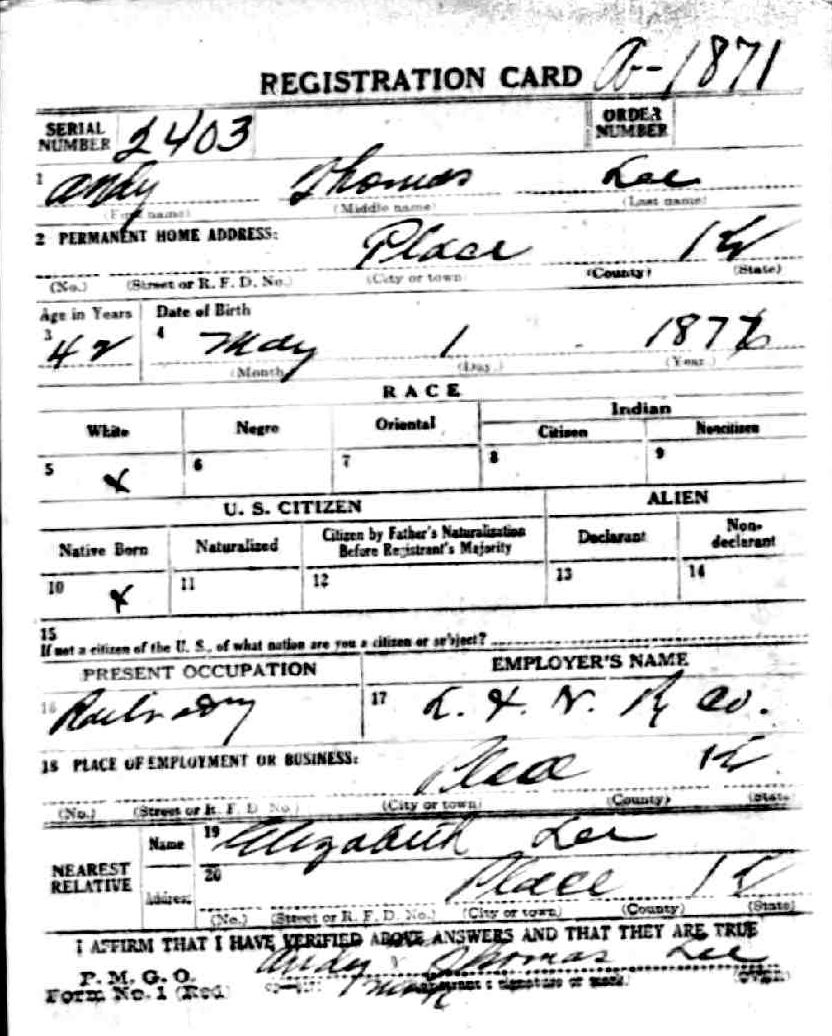 REGISTRATION CARD A-1871
SERIAL NUMBER 2403 ORDER NUMBER
1 Andy Thomas Lee
(First name) (Middle name) (Last name)
2 PERMANENT HOME ADDRESS: Place Ky
(No.) (Street or R. F. D. No.) (City or town) (County) (State)
Age in Years Date of Birth
3 42 4 May 1 1876
(Month) (Day.) (Year.)
RACE
White Negro Oriental Indian
Citizen Noncitizen
5 x 6 7 8 9
U. S. CITIZEN ALIEN
Native Born Naturalized Citizen by Father's Naturalization Before Registrant's Majority Declarant Non-declarant
10 x 11 12 13 14
15
If not a citizen of the U. S., of what nation are you a citizen or subject?
PRESENT OCCUPATION EMPLOYER'S NAME
16 Railroading 17 L. & N. R Co.
18 PLACE OF EMPLOYMENT OR BUSINESS: Place Ky
(No.) (Street or R. F. D. No.) (City or town) (County) (State)
NEAREST RELATIVE Name 19 Elizabeth Lee
Address 20 Place Ky
(No.) (Street or R. F. D. No.) (City or town) (County) (State)
I AFFIRM THAT I HAVE VERIFIED ABOVE ANSWERS AND THAT THEY ARE TRUE
P. M. G. O. Andy Thomas Lee
Form No. 1 (Red) mark (Registrant's signature or mark) (OVER)